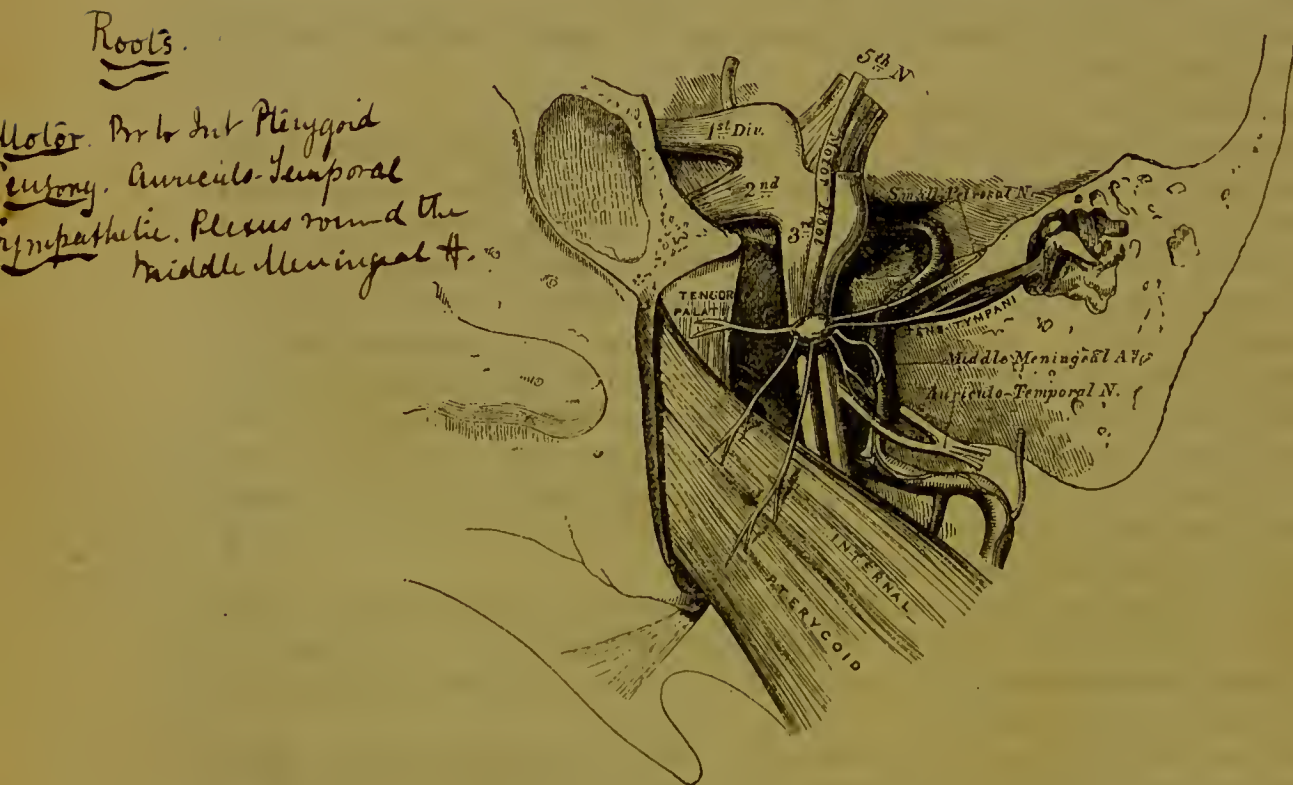 Roots.
Motor. Br to Int Pterygoid
Sensory. Auriculo-Temporal
Sympathetic. Plexus round the
Middle Meningeal A.
5th N
1st Div.
2nd
3rd
MOTOR ROOT
Small Petrosal N.
TENSOR
PALATI
TENS. TYMPANI
Middle Meningeal Ay.
Auriculo-Temporal N.
INTERNAL
PTERYGOID